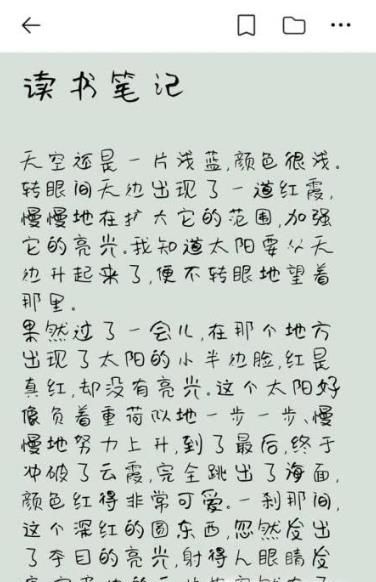 读书笔记
天空还是一片浅蓝,颜色很浅。
转眼间天边出现了一道红霞,
慢慢地在扩大它的范围,加强
它的亮光。我知道太阳要从天
边升起来了,便不转眼地望着
那里。
果然过了一会儿,在那个地方
出现了太阳的小半边脸,红是
真红,却没有亮光。这个太阳好
像负着重荷似地一步一步、慢
慢地努力上升,到了最后,终于
冲破了云霞,完全跳出了海面,
颜色红得非常可爱。一刹那间,
这个深红的圆东西,忽然发出
了夺目的亮光,射得人眼睛发